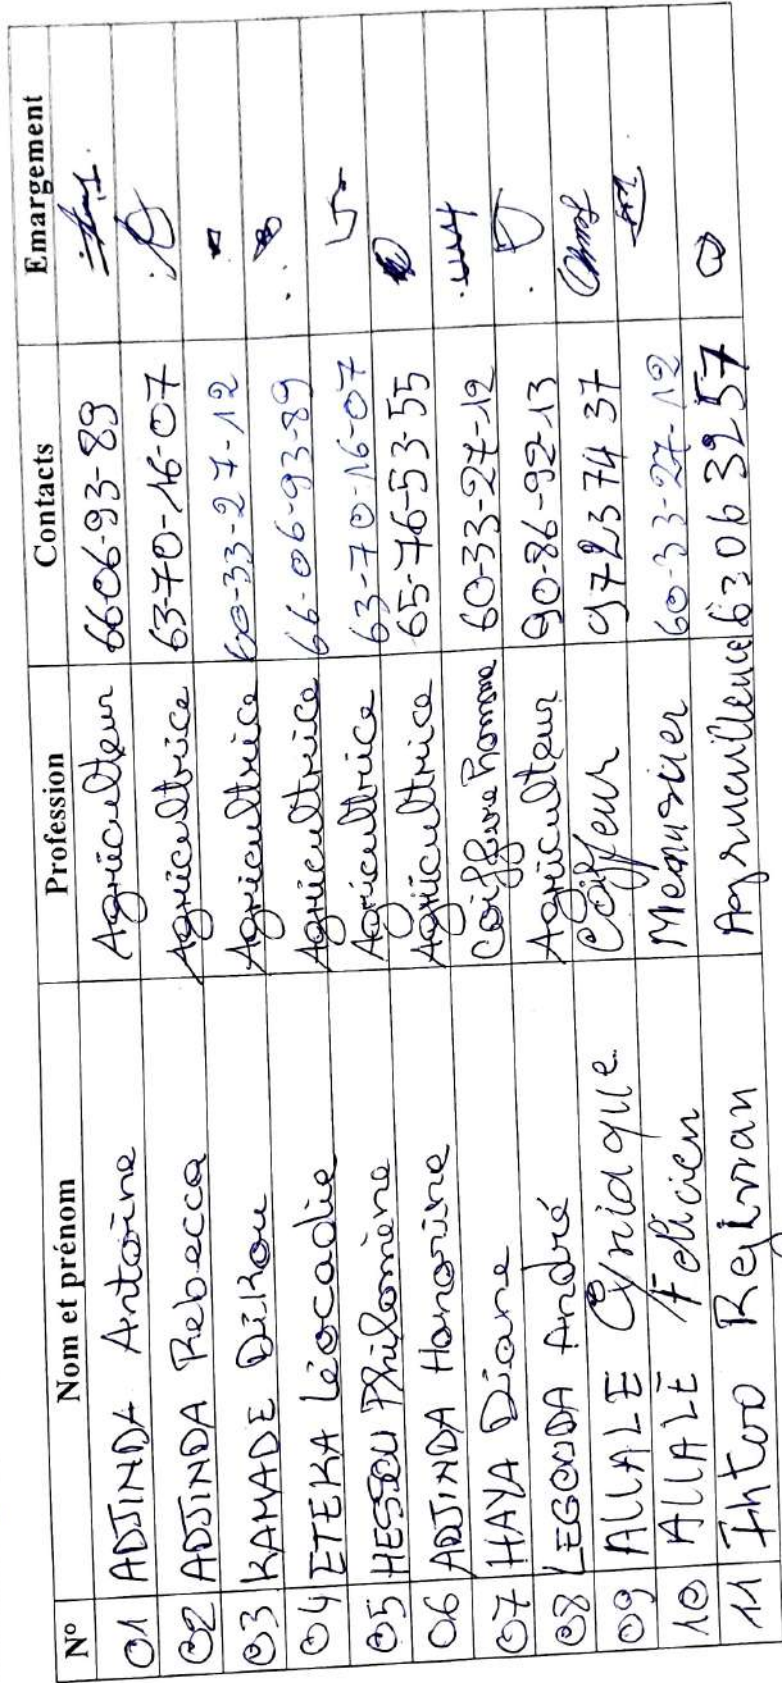 N° Nom et prénom Profession Contacts Emargement
01 ADJINDA Antoine Agriculteur 6606-93-89
02 ADJINDA Rebecca Agricultrice 63-70-16-07
03 KAMADE Dikou Agricultrice 60-33-27-12
04 ETEKA Léocadie Agricultrice 66-06-93-89
05 HESSOU Philomène Agricultrice 63-70-16-07
06 ADJINDA Honorine Agricultrice 65-76-53-55
07 HAYA Diane Coiffure homme 60-33-27-12
08 LEGONDA André Agriculteur 90-86-92-13
09 ALLALE Cyriaque Coiffeur 97237437
10 ALLALE Felicien Menusier 60-33-27-12
11 63063257